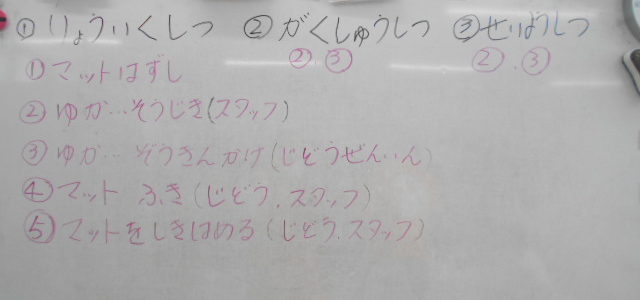 ①りょういくしつ ②がくしゅうしつ ③せいぼうしつ
②.③ ②.③
①マットはずし
②ゆか…そうじき(スタッフ)
③ゆか…ぞうきんかけ(じどうぜんいん)
④マット ふき(じどう.スタッフ)
⑤マットをしきはめる(じどう.スタッフ)